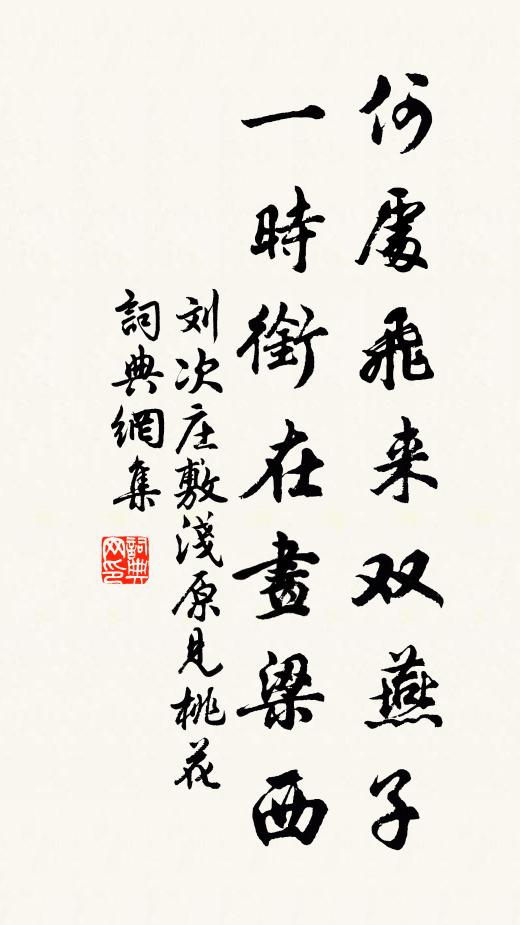 何處飛来双燕子
一時銜在畫梁西
刘次庄敷淺原見桃花
詞典網集
詞典网印